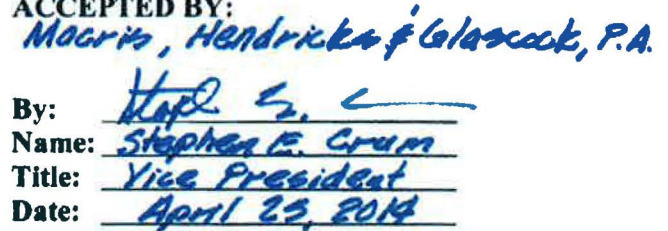 ACCEPTED BY:
Macris, Hendricks & Glascock, P.A.
By:
Name: Stephen E. Crum
Title: Vice President
Date: April 25, 2014